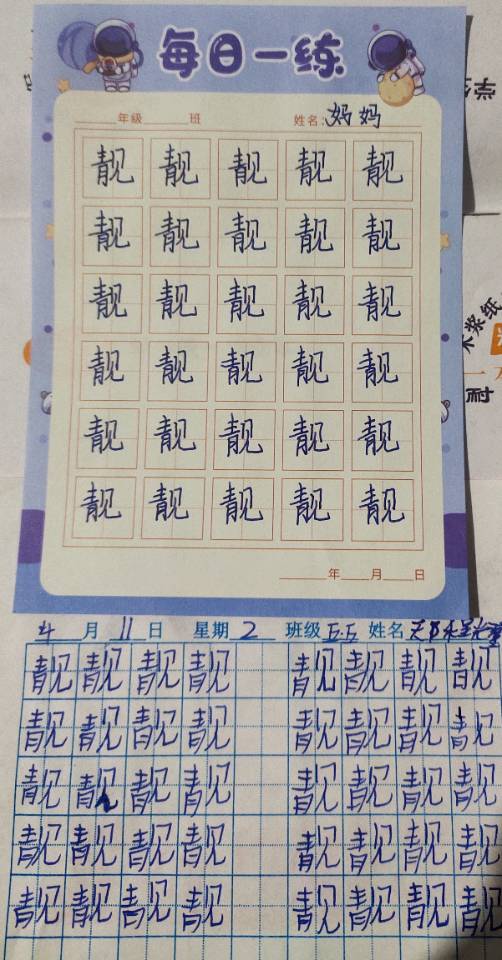 每日一练
年级 班 姓名：妈妈
靓 靓 靓 靓 靓
靓 靓 靓 靓 靓
靓 靓 靓 靓 靓
靓 靓 靓 靓 靓
靓 靓 靓 靓 靓
靓 靓 靓 靓 靓
年 月 日
4月11日 星期2 班级五.五 姓名
靓 靓 靓 靓 靓 靓 靓 靓
靓 靓 靓 靓 靓 靓 靓 靓
靓 靓 靓 靓 靓 靓 靓 靓
靓 靓 靓 靓 靓 靓 靓 靓
靓 靓 靓 靓 靓 靓 靓 靓
木浆纸
耐